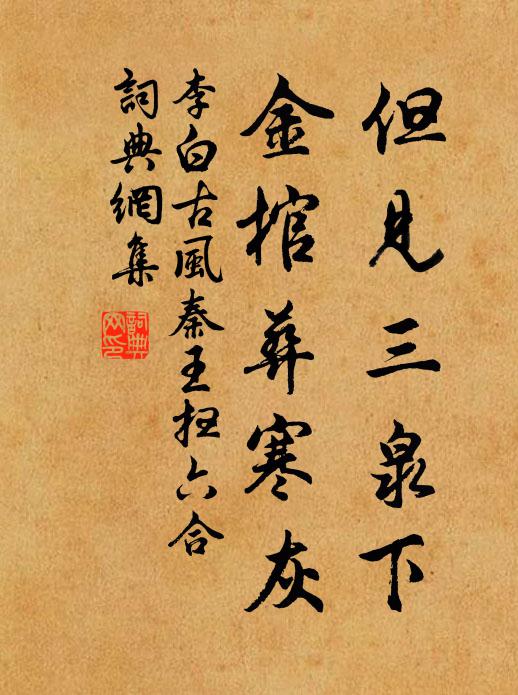 但見三泉下
金棺葬寒灰
李白古風秦王扫六合
詞典網集
詞典
网印